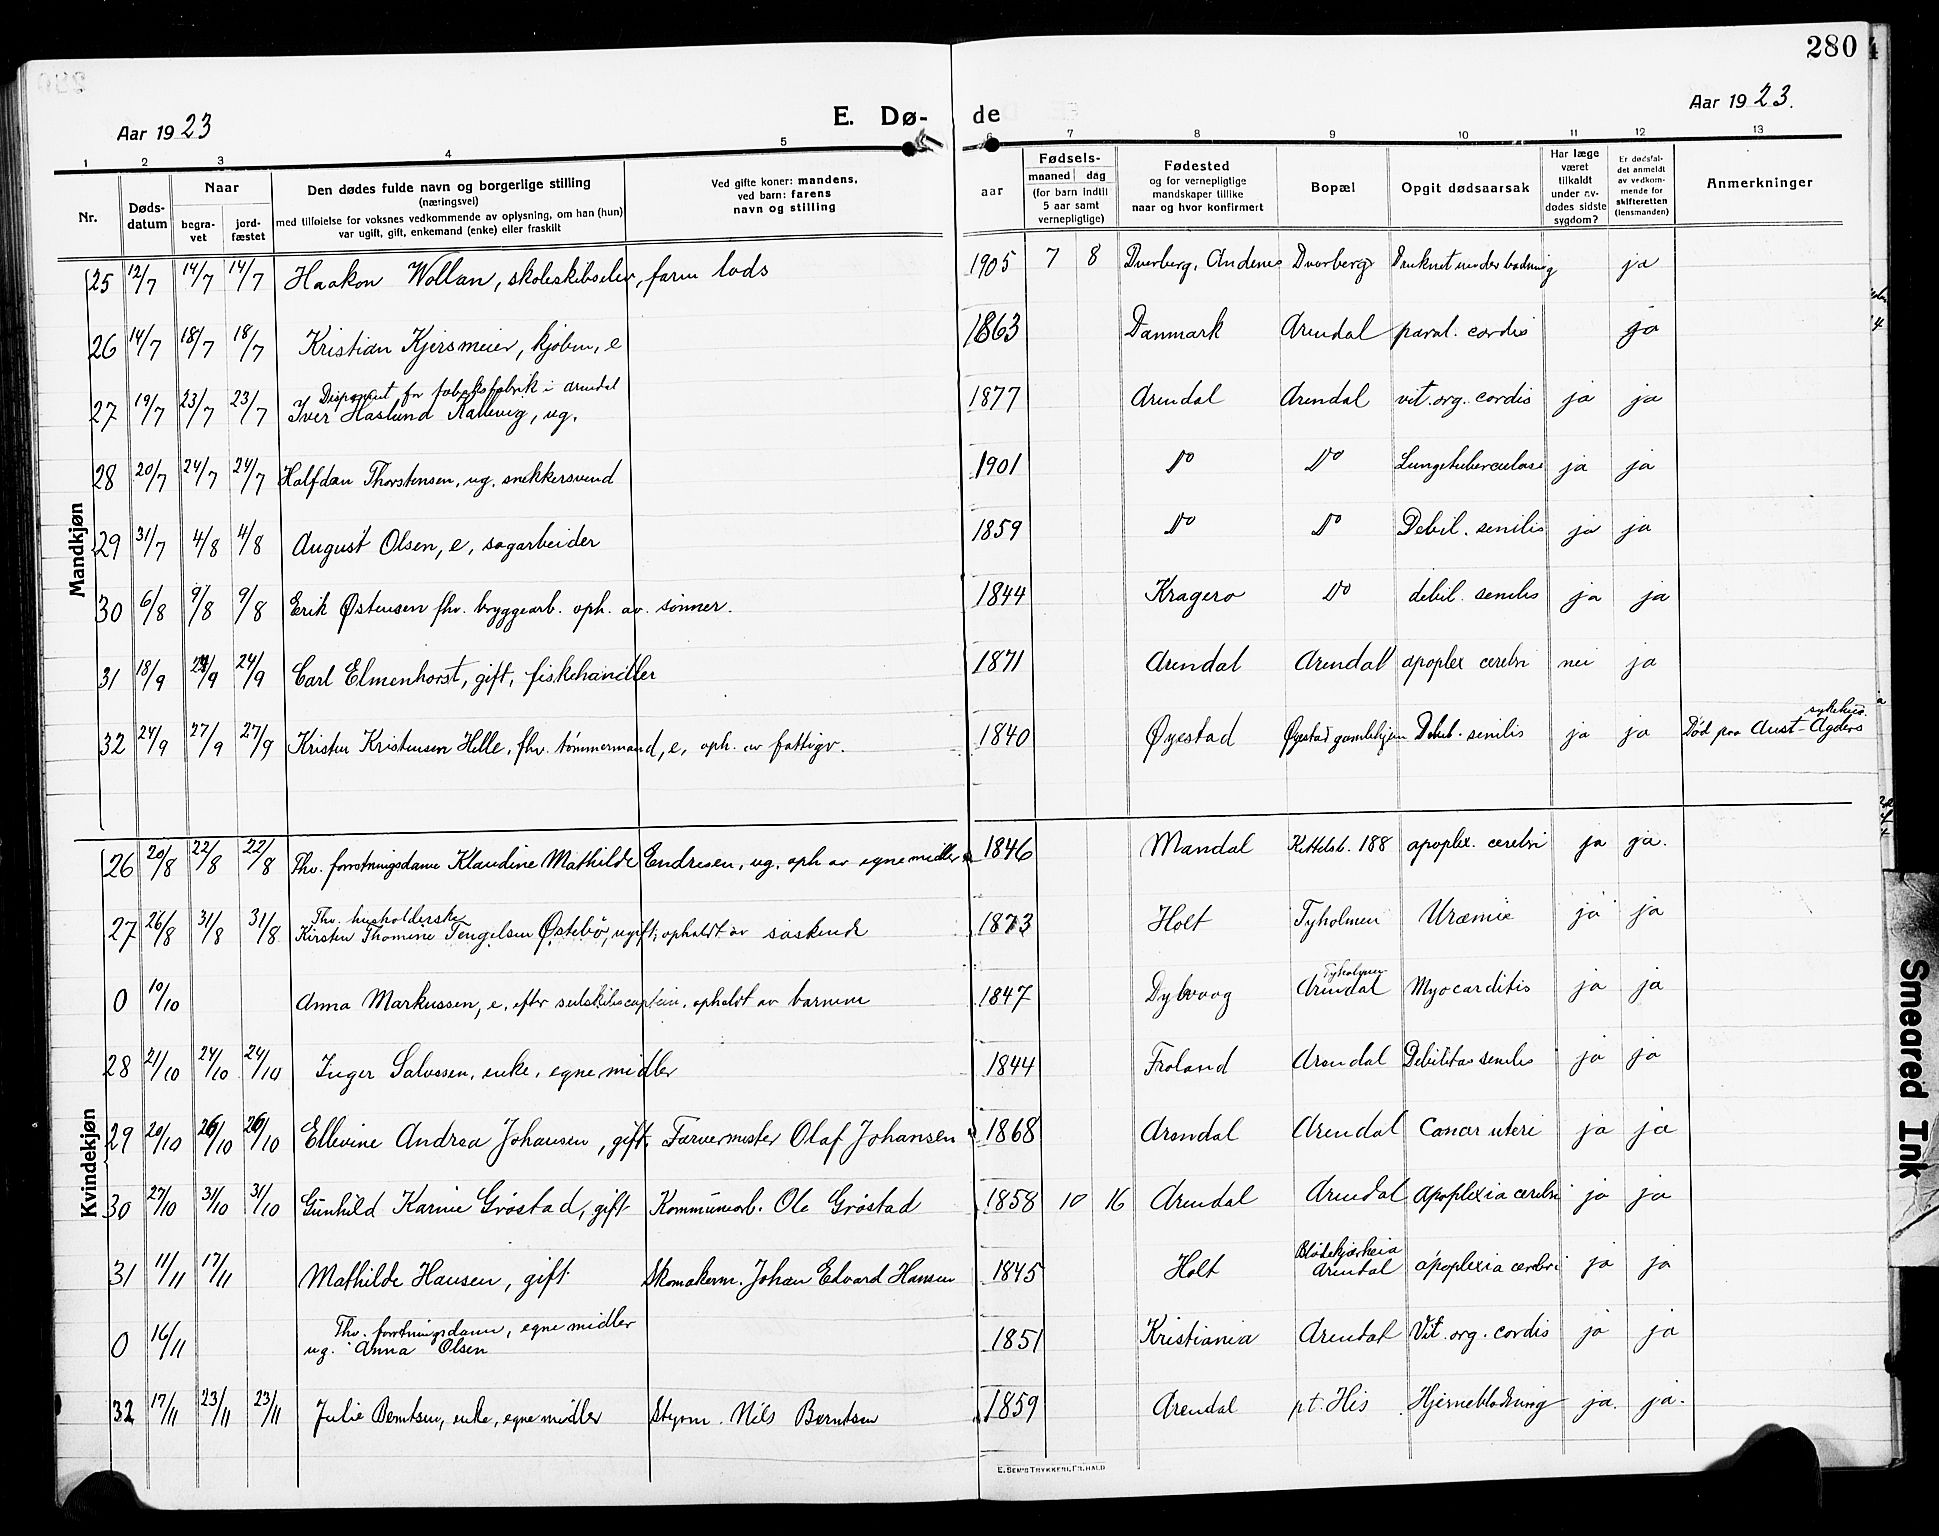 280
Aar 1923
E. Dø-
de
Aar 1923.
1 2 3 4 5 6 7 8 9 10 11 12 13
Nr.
Døds-
datum
Naar
begra-
vet
jord-
fæstet
Den dødes fulde navn og borgerlige stilling
(næringsvei)
med tilføielse for voksnes vedkommende av oplysning, om han (hun)
var ugift, gift, enkemand (enke) eller fraskilt
Ved gifte koner: mandens,
ved barn: farens
navn og stilling
Fødsels-
aar
maaned dag
(for barn indtil
5 aar samt
vernepligtige)
Fødested
og for vernepligtige
mandskaper tillike
naar og hvor konfirmert
Bopæl
Opgit dødsaarsak
Har læge
været
tilkaldt
under av-
dødes sidste
sygdom?
Er dødsfal-
det anmeldt
av vedkom-
mende for
skifteretten
(lensmanden)
Anmerkninger
Mandkjøn
25 12/7 14/7 14/7 Haakon Wollan, skoleskibselev, farm lods 1905 7 8 Dverberg, Andenes Dverberg Druknet under badning ja
26 14/7 18/7 18/7 Kristian Kjersmeier, kjøbm, e 1863 Danmark Arendal paral. cordis ja
Disponent for tobaksfabrik i Arendal
27 19/7 23/7 23/7 Iver Haslund Kallevig, ug. 1877 Arendal Arendal vit. org. cordis ja ja
28 20/7 24/7 24/7 Halfdan Thorstensen, ug. snekkersvend 1901 Do Do Lungetuberculose ja ja
29 31/7 4/8 4/8 August Olsen, e, sagarbeider 1859 Do Do Debil. senilis ja ja
30 6/8 9/8 9/8 Erik Østensen fhv. bryggearb. oph. av sønner. 1844 Kragerø Do debil. senilis ja ja
31 18/9 24/9 24/9 Carl Elmenhorst, gift, fiskehandler 1871 Arendal Arendal apoplex cerebri nei ja
sykehus.
32 24/9 27/9 27/9 Kristen Kristensen Helle, fhv. tømmermand, e, oph. av fattigv. 1840 Øyestad Øyestad gamlehjem Debil. senilis ja ja Død paa Aust-Agders
Kvindekjøn
26 20/8 22/8 22/8 Fhv. forretningsdame Klaudine Mathilde Endresen, ug. oph av egne midler 1846 Mandal Kittelsb. 188 apoplex. cerebri ja ja.
Fhv. husholderske
27 26/8 31/8 31/8 Kirsten Thomine Tengelsen Østebø, ugift, opholdt av søskende 1873 Holt Tyholmen Uræmie ja ja
Tyholmen
0 10/10 Anna Markussen, e. efter seilskibscaptein, opholdt av barnene 1847 Dybvaag Arendal Myocarditis ja ja
28 21/10 24/10 24/10 Inger Salvesen, enke, egne midler 1844 Froland Arendal Debilitas senilis ja ja
29 20/10 26/10 26/10 Ellevine Andrea Johansen, gift. Farvermester Olaf Johansen 1868 Arendal Arendal Cancer uteri ja ja
30 27/10 31/10 31/10 Gunhild Karine Grøstad, gift Kommunearb. Ole Grøstad 1858 10 16 Arendal Arendal Apoplexia cerebri ja ja
Blødekjærheia
31 11/11 17/11 Mathilde Hansen, gift Skomakerm. Johan Edvard Hansen 1845 Holt Arendal apoplexia cerebri ja ja
Fhv. forretningsdame, egne midler
0 16/11 ug. Anna Olsen 1851 Kristiania Arendal Vit. org. cordis ja ja
32 17/11 23/11 23/11 Julie Berntsen, enke, egne midler Styrm. Nils Berntsen 1859 Arendal pt. His Hjerneblødning ja. ja.
Smeared Ink